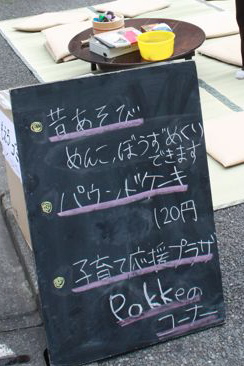 昔あそび
めんこ、ぼうずめくり
できます
パウンドケーキ
120円
子育て応援プラザ
Pokkeの
コーナー